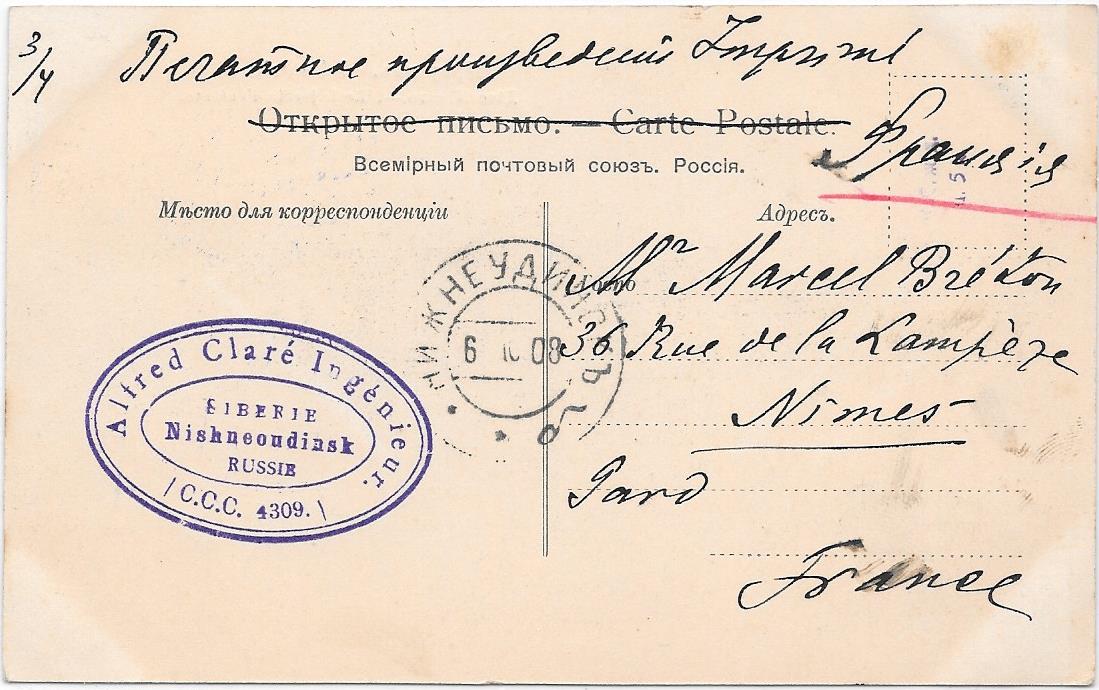 3/4
Печатное произведенiе Imprimé
Открытое письмо. — Carte Postale.
Всемірный почтовый союзъ. Россія.
Франція
Мѣсто для корреспонденціи
Адресъ.
Mr Marcel Bréton
36 Rue de la Lampèze
Nimes
Gard
France
НИЖНЕУДИНСКЪ
6 08
Alfred Claré Ingénieur.
SIBERIE
Nishneoudinsk
RUSSIE
/ C.C.C. 4309. \